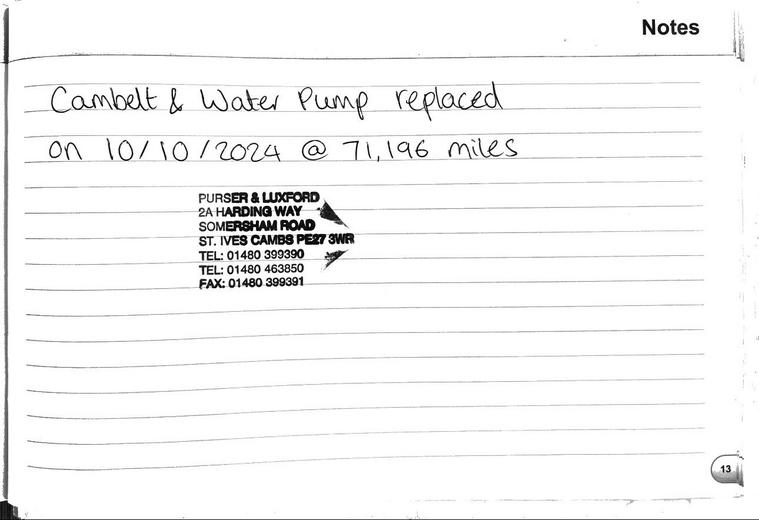 Notes
Cambelt & Water Pump replaced
on 10/10/2024 @ 71,196 miles
PURSER & LUXFORD
2A HARDING WAY
SOMERSHAM ROAD
ST. IVES CAMBS PE27 3WR
TEL: 01480 399390
TEL: 01480 463850
FAX: 01480 399391
13